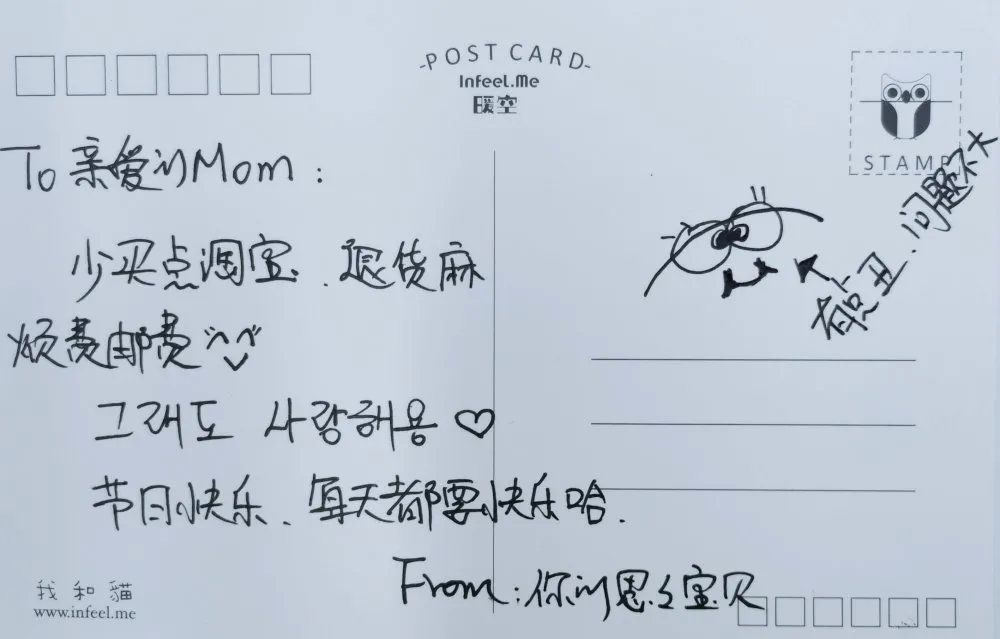 POST CARD
Infeel.Me
暖空
STAMP
To 亲爱的Mom：
少买点淘宝、退货麻
烦费邮费
그래도 사랑해용♡
节日快乐、每天都要快乐哈.
From：你的恩
宝贝
有点丑.问题不大
我和貓
www.infeel.me